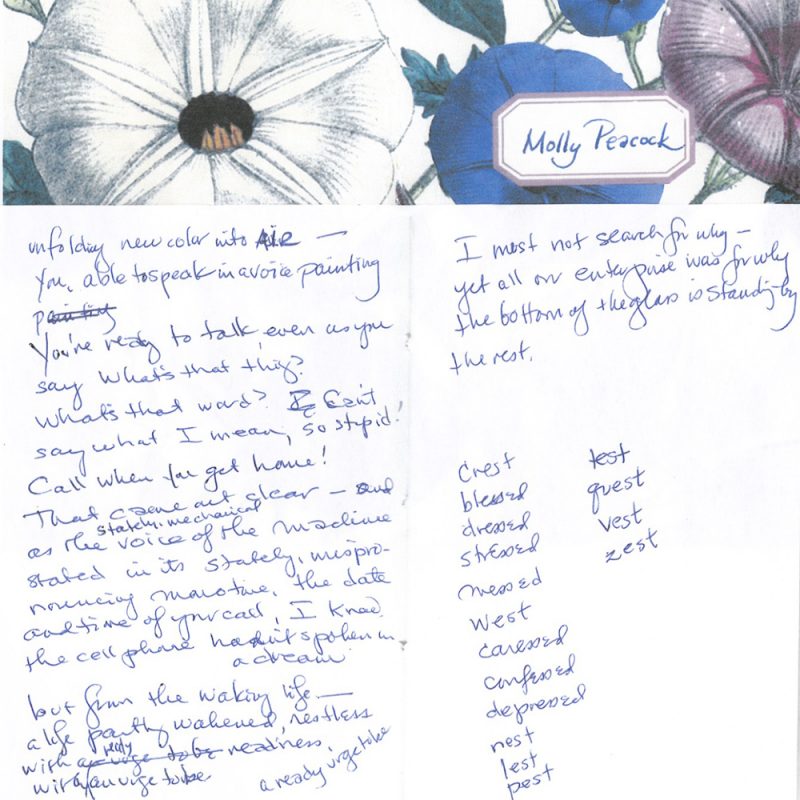 Molly Peacock
unfolding new color into AIR —
You, able to speak in a voice painting
painting
You're ready to talk even as you
say What's that thing?
What's that word? I Can't
say what I mean, so stupid!
Call when you get home!
That came out clear — and
stately, mechanical
as the voice of the machine
stated in its stately, mispro-
nouncing monotone, the date
and time of your call, I knew
the cell phone hadn't spoken in
a dream
but from the waking life —
a life partly wakened, restless
ready
with an urge to be readiness,
with an urge to be
a ready urge to be
I must not search for why —
yet all our enterprise was for why
the bottom of the glass is standing by
the rest.
crest
blessed
dressed
stressed
messed
West
caressed
confessed
depressed
nest
lest
pest
test
quest
vest
zest